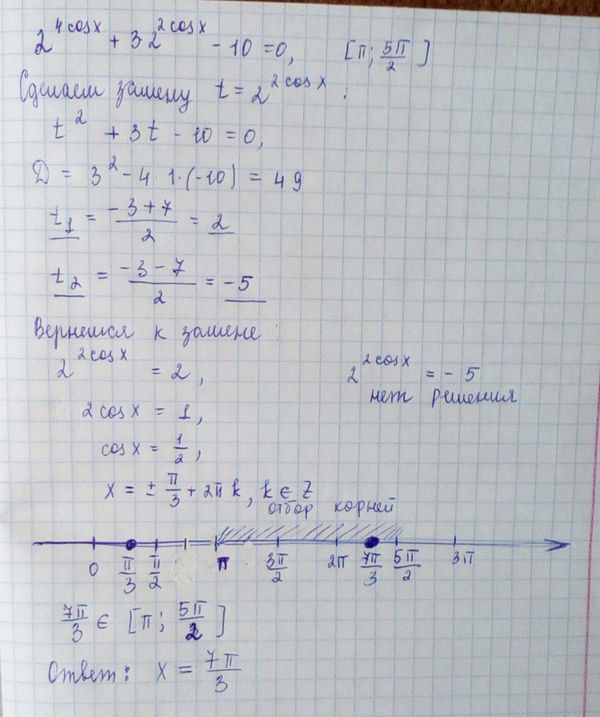 2^{4cosx} + 3 2^{2cosx} - 10 = 0, [π; 5π/2]
Сделаем замену t = 2^{2cosx} :
t^2 + 3t - 10 = 0,
D = 3^2 - 4·1·(-10) = 49
t_1 = (-3+7)/2 = 2
t_2 = (-3-7)/2 = -5
Вернемся к замене
2^{2cosx} = 2, 2^{2cosx} = -5
нет решения
2cosx = 1,
cosx = 1/2,
x = ± π/3 + 2πk, k ∈ Z
отбор корней
0 π/3 π/2 π 3π/2 2π 7π/3 5π/2 3π
7π/3 ∈ [π; 5π/2]
Ответ: x = 7π/3